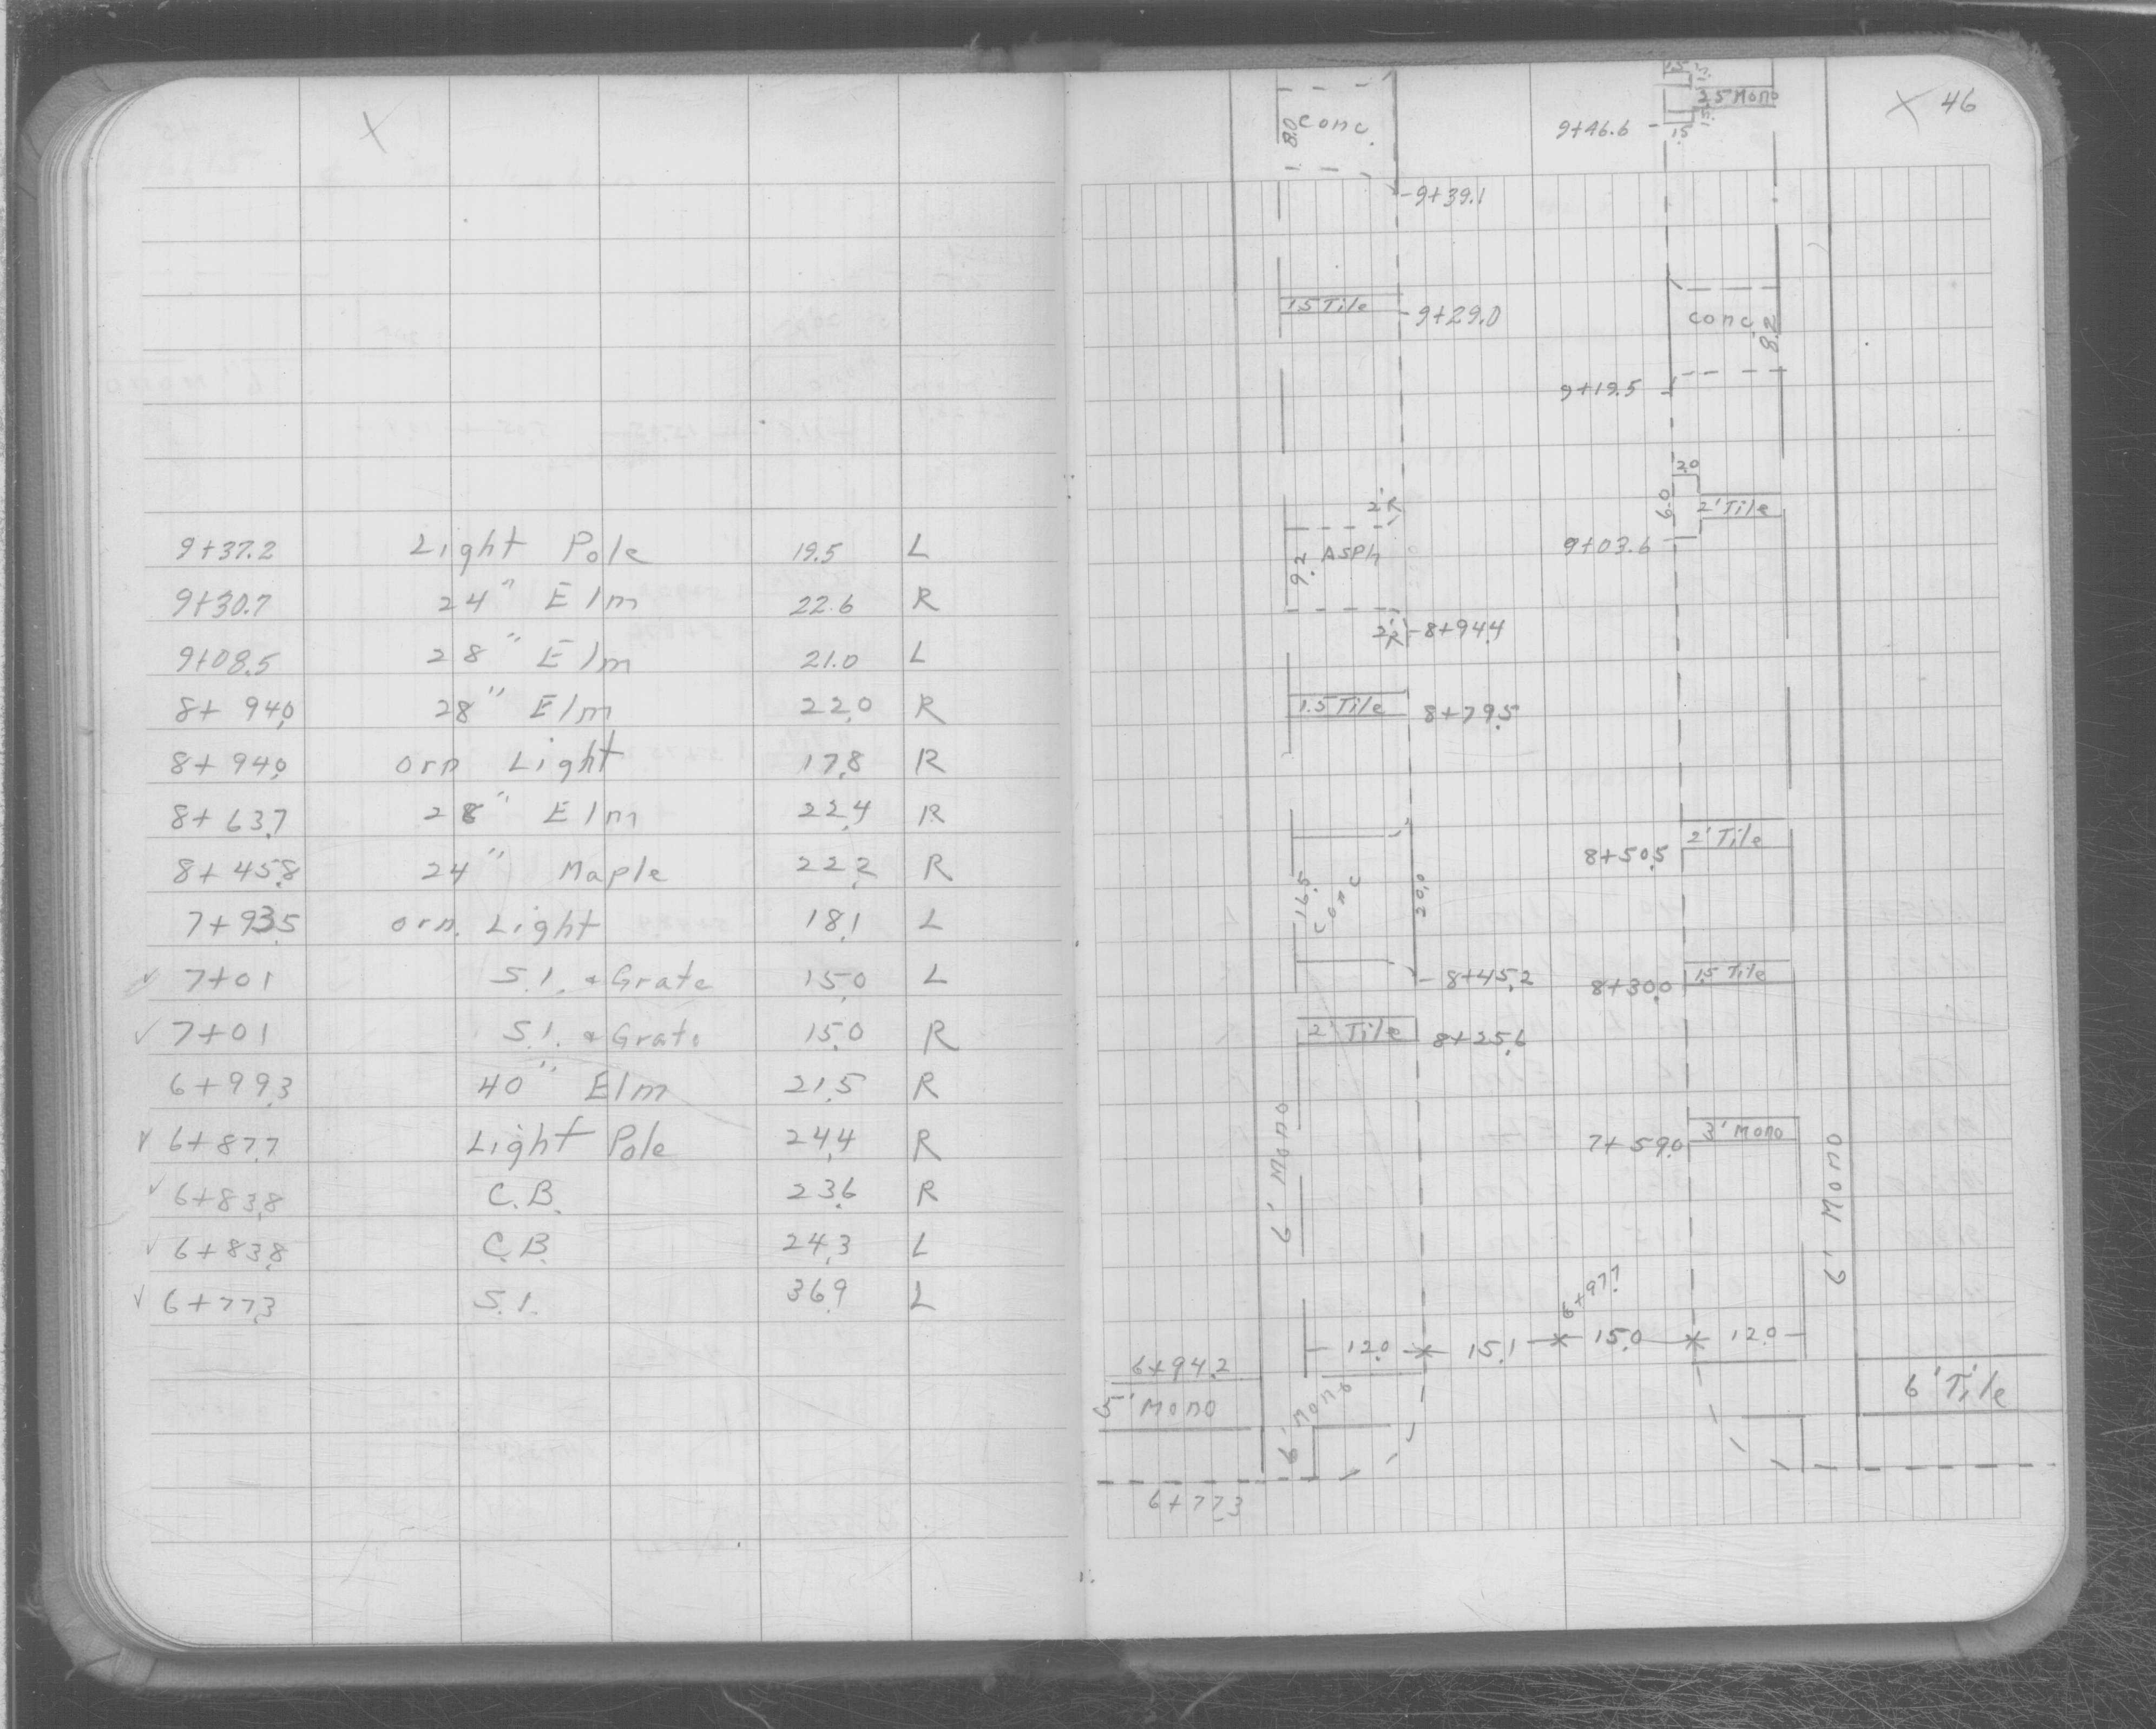 X
9+37.2 Light Pole 19.5 L
9+30.7 24" Elm 22.6 R
9+08.5 28" Elm 21.0 L
8+94.0 28" Elm 22.0 R
8+94.0 orn Light 17.8 R
8+63.7 28" Elm 22.4 R
8+45.8 24" Maple 22.2 R
7+93.5 orn. Light 18.1 L
✓ 7+01 S.I. & Grate 15.0 L
✓ 7+01 S.I. & Grate 15.0 R
6+99.3 40" Elm 21.5 R
✓ 6+87.7 Light Pole 24.4 R
✓ 6+83.8 C.B. 23.6 R
✓ 6+83.8 C.B. 24.3 L
✓ 6+77.3 S.I. 36.9 L
X 46
1.5
2.5 Mono
8.0 Conc.
9+46.6 1.5
9+39.1
1.5 Tile 9+29.0
Conc. 8.2
9+19.5
2.0
2'R 6.0 2' Tile
9.2 Asph 9+03.6
2'R 8+94.4
1.5 Tile 8+79.5
8+50.5 2' Tile
16.5 Conc 20.0
8+45.2 8+30.0 1.5 Tile
2' Tile 8+25.6
7+59.0 3' Mono
6' Mono 6' Mono
6+97.7
12.0 15.1 15.0 12.0
6+94.2
5' Mono 6' Mono 6' Tile
6+77.3